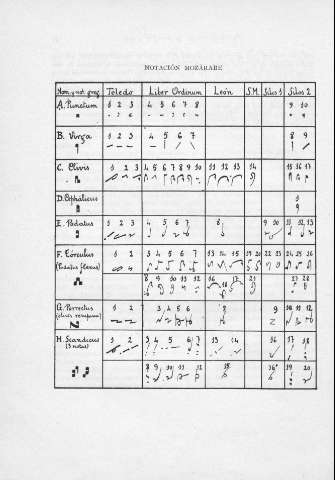 NOTACIÓN MOZÁRABE
Nom. y not. greg. Toledo Liber Ordinum León S.M. Silos 1 Silos 2
A. Punctum 1 2 3 4 5 6 7 8 9 10
B. Virga 1 2 3 4 5 6 7 8 9
C. Clivis 1 2 3 4 5 6 7 8 9 10 11 12 13 14 15 16 17
D. Cephalicus 1
E. Podatus 1 2 3 4 5 6 7 8 9 10 11 12 13
F. Torculus 1 2 3 4 5 6 7 13 14 15 19 20 22 23 24 25 26
(Podatus flexus) 8 9 10 11 12 16 17 21 27 28
G. Porrectus 1 2 3 4 5 6 9 10 11 12
(clivis resupina)
H. Scandicus 1 2 3 4 5 6 7 13 14 16 17 18
(3 notas)
8 9 10 11 12 15 19 20